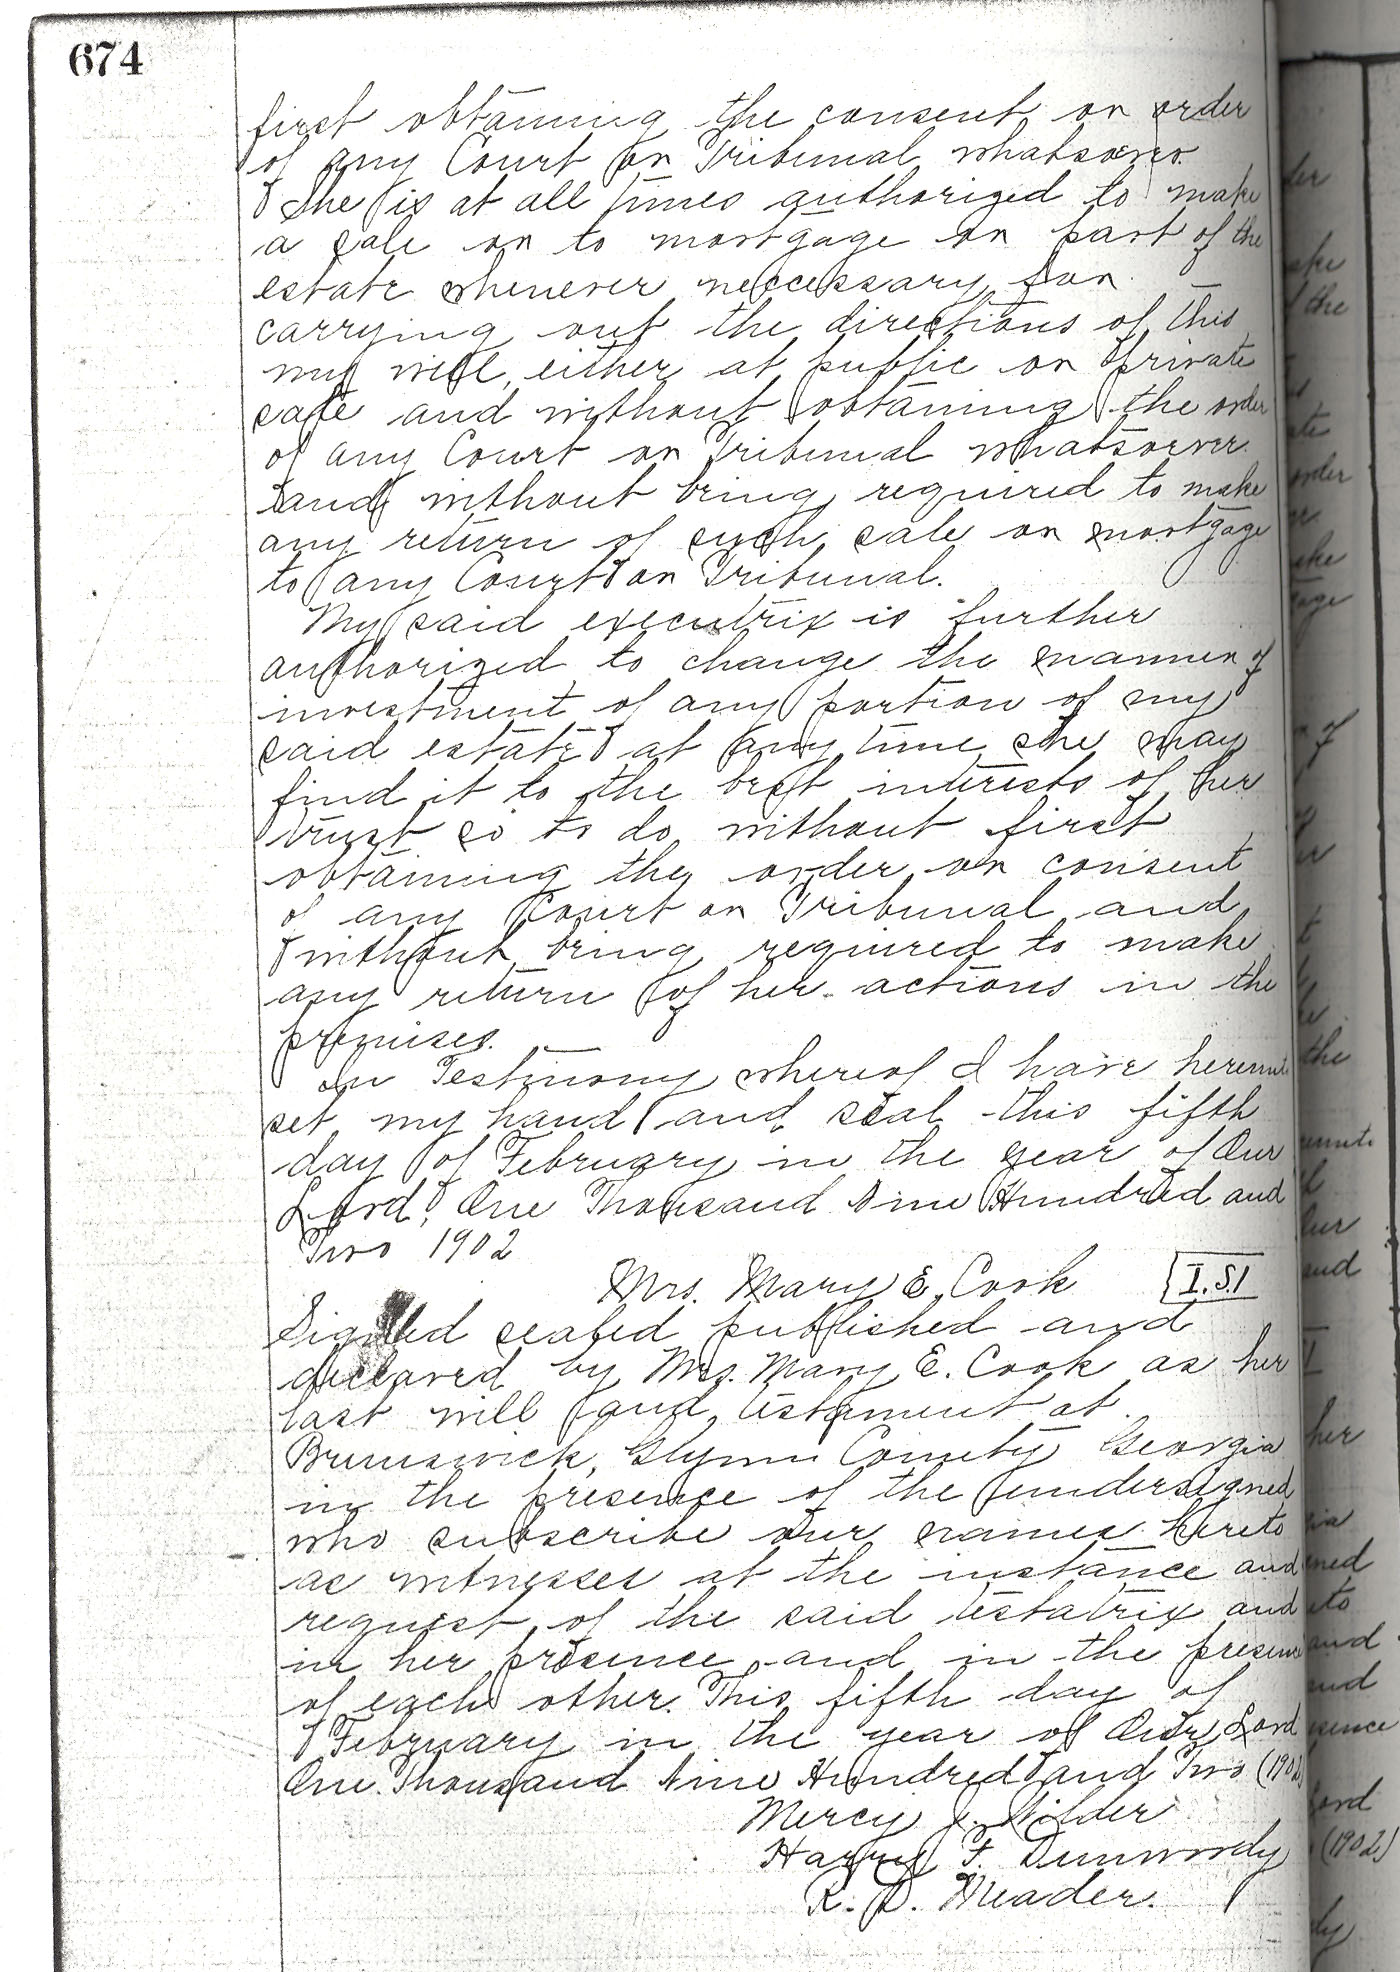 674
first obtaining the consent or order
of any Court or Tribunal whatsoever.
She is at all times authorized to make
a sale or to mortgage or part of the
estate whenever neccessary for
carrying out the directions of this
my will, either at public or private
sale and without obtaining the order
of any Court or Tribunal whatsoever
and without being required to make
any return of such sale or mortgage
to any Court or Tribunal.
My said executrix is further
authorized to change the manner of
investment of any portion of my
said estate at any time she may
find it to the best interests of her
trust so to do without first
obtaining the order or consent
of any Court or Tribunal and
without being required to make
any return of her actions in the
premises.
In Testimony whereof I have hereunto
set my hand and seal this fifth
day of February in the year of Our
Lord, One Thousand Nine Hundred and
Two 1902
Mrs. Mary E. Cook L.S.
Signed sealed published and
declared by Mrs. Mary E. Cook as her
last will and testament at
Brunswick, Glynn County Georgia
in the presence of the undersigned
who subscribe our names hereto
as witnesses at the instance and
request of the said testatrix and
in her presence and in the presence
of each other. This fifth day of
February in the year of Our Lord
One Thousand Nine Hundred and Two (1902)
Mercy J. Wilder
Harry F. Dunwoody
R. D. Meader.